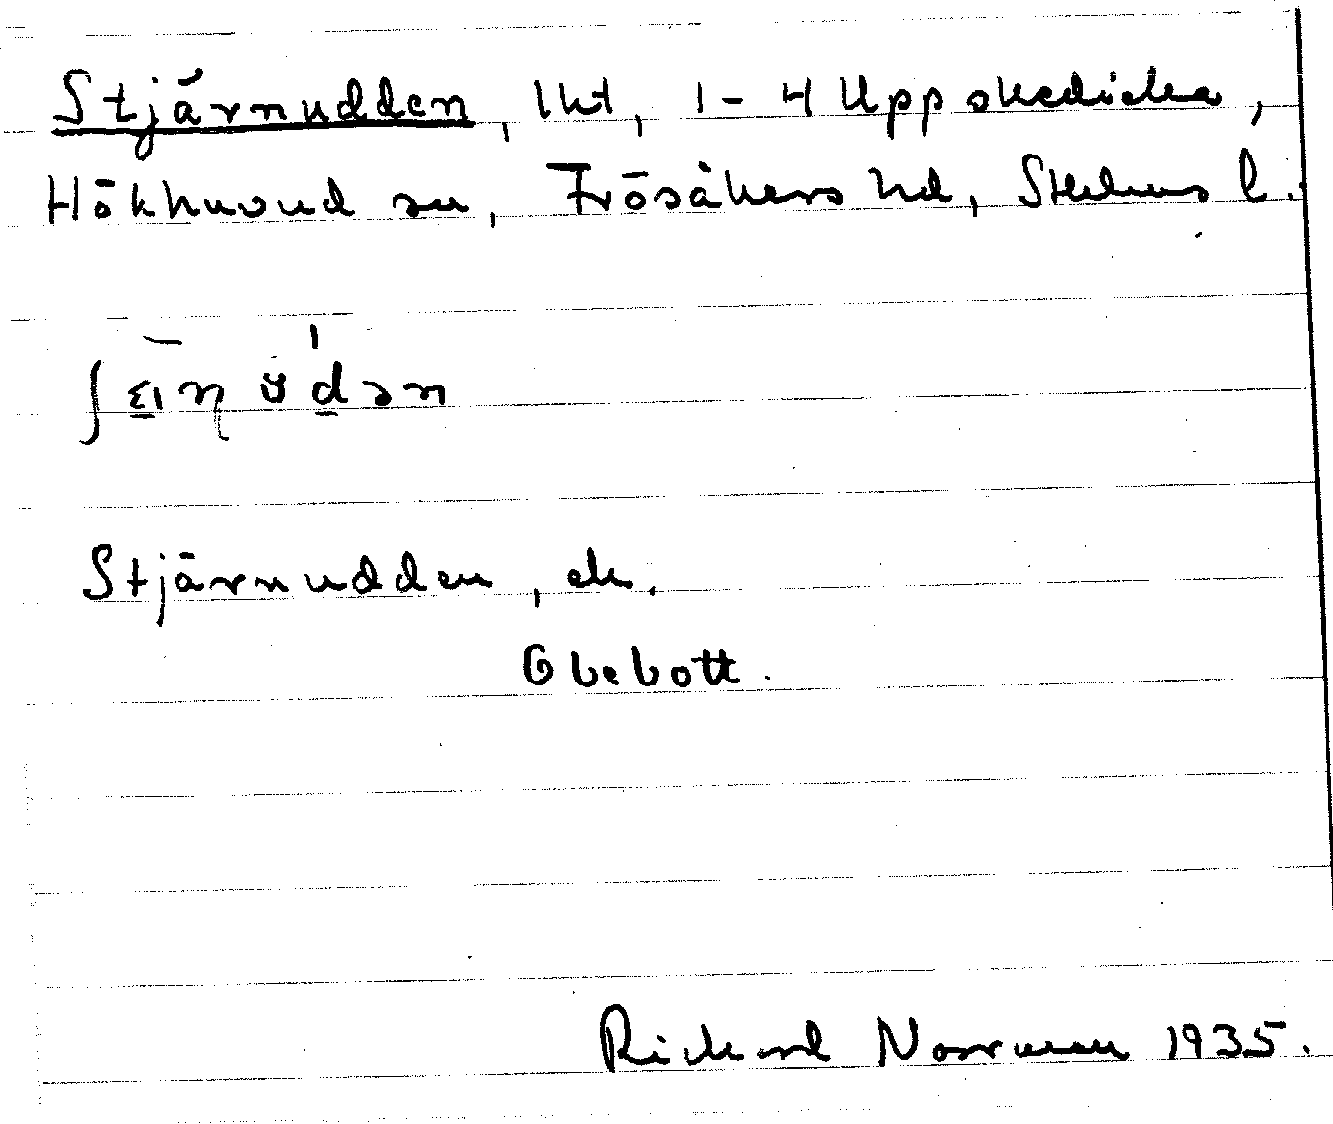 Stjärnudden, lht, 1-4 Uppskedicka,
Hökhuvud sn, Frösåkers hd, Sthlms l.
Stjärnudden, ek.
Obebott.
Rickard Norrman 1935.